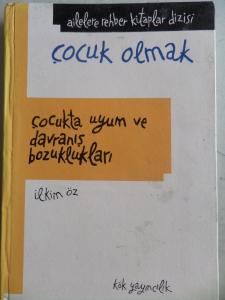 ailelere rehber kitaplar dizisi
çocuk olmak
çocukta uyum ve
davranış
bozuklukları
ilkim öz
kök yayıncılık